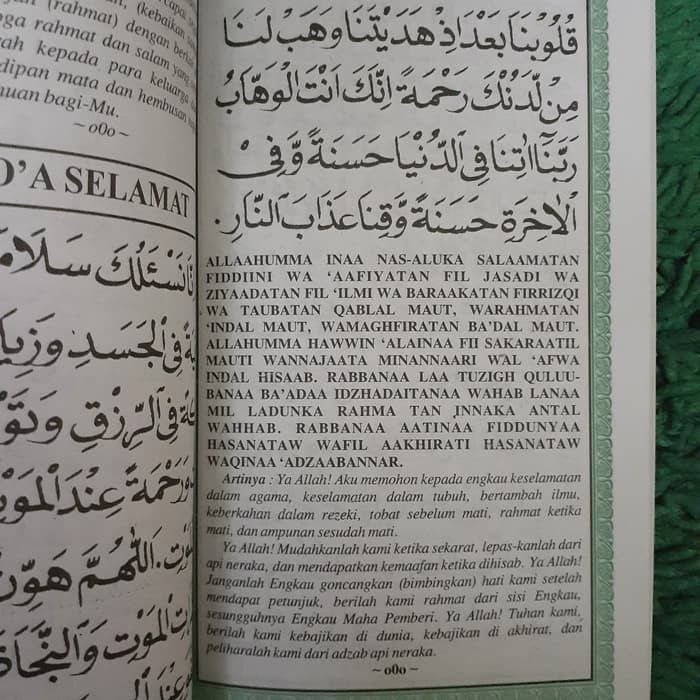 (rahmat) dengan
rahmat dan salam yang
kepada para keluarga
dipan mata dan hembusan
bagi-Mu.
~ o0o ~
O'A SELAMAT
نَسْئَلُكَ سَلَامَ
فِى الْجَسَدِ وَزِيَا
فِى الرِّزْقِ وَتَوْ
وَرَحْمَةً عِنْدَ الْمَوْ
اَللّٰهُمَّ هَوِّنْ
الْمَوْتِ وَالنَّجَاةَ
قُلُوْبَنَا بَعْدَ اِذْ هَدَيْتَنَا وَهَبْ لَنَا
مِنْ لَّدُنْكَ رَحْمَةً اِنَّكَ اَنْتَ الْوَهَّابُ
رَبَّنَا اٰتِنَا فِى الدُّنْيَا حَسَنَةً وَّفِى
الْاٰخِرَةِ حَسَنَةً وَّقِنَا عَذَابَ النَّارِ.
ALLAAHUMMA INAA NAS-ALUKA SALAAMATAN
FIDDIINI WA 'AAFIYATAN FIL JASADI WA
ZIYAADATAN FIL 'ILMI WA BARAAKATAN FIRRIZQI
WA TAUBATAN QABLAL MAUT, WARAHMATAN
'INDAL MAUT, WAMAGHFIRATAN BA'DAL MAUT.
ALLAHUMMA HAWWIN 'ALAINAA FII SAKARAATIL
MAUTI WANNAJAATA MINANNAARI WAL 'AFWA
INDAL HISAAB. RABBANAA LAA TUZIGH QULUU-
BANAA BA'ADAA IDZHADAITANAA WAHAB LANAA
MIL LADUNKA RAHMA TAN INNAKA ANTAL
WAHHAB. RABBANAA AATINAA FIDDUNYAA
HASANATAW WAFIL AAKHIRATI HASANATAW
WAQINAA 'ADZAABANNAR.
Artinya : Ya Allah! Aku memohon kepada engkau keselamatan
dalam agama, keselamatan dalam tubuh, bertambah ilmu,
keberkahan dalam rezeki, tobat sebelum mati, rahmat ketika
mati, dan ampunan sesudah mati.
Ya Allah! Mudahkanlah kami ketika sekarat, lepas-kanlah dari
api neraka, dan mendapatkan kemaafan ketika dihisab. Ya Allah!
Janganlah Engkau goncangkan (bimbingkan) hati kami setelah
mendapat petunjuk, berilah kami rahmat dari sisi Engkau,
sesungguhnya Engkau Maha Pemberi. Ya Allah! Tuhan kami,
berilah kami kebajikan di dunia, kebajikan di akhirat, dan
peliharalah kami dari adzab api neraka.
~ o0o ~